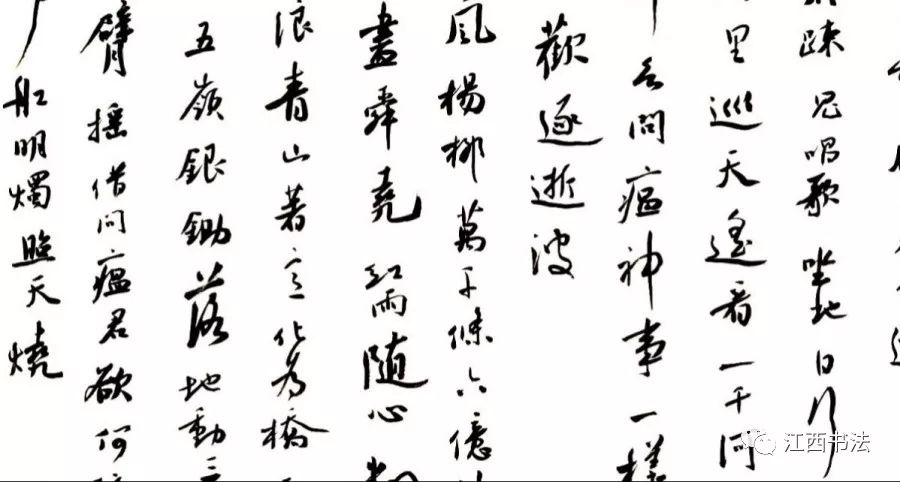 疎鬼唱歌坐地日行
里巡天遙看一千河
問瘟神事一樣
歡逐逝波
風楊柳萬千條六億
盡舜堯紅雨随心
浪青山著意化为橋
五嶺銀鋤落地動三
臂搖借问瘟君欲何
船明燭照天燒
江西书法